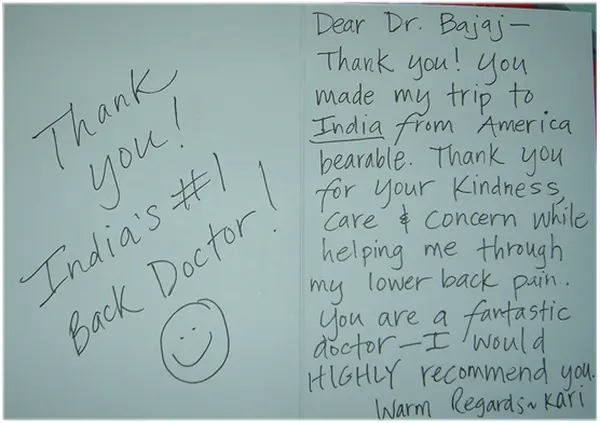 Thank
you!
India's #1
Back Doctor!
Dear Dr. Bajaj—
Thank you! You
made my trip to
India from America
bearable. Thank you
for your kindness,
care & concern while
helping me through
my lower back pain.
You are a fantastic
doctor—I would
HIGHLY recommend you.
Warm Regards~ Kari